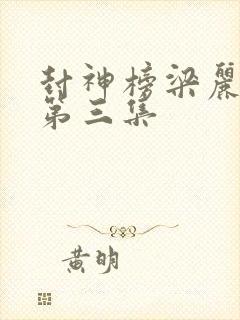 封神榜梁麗
第三集
黃明